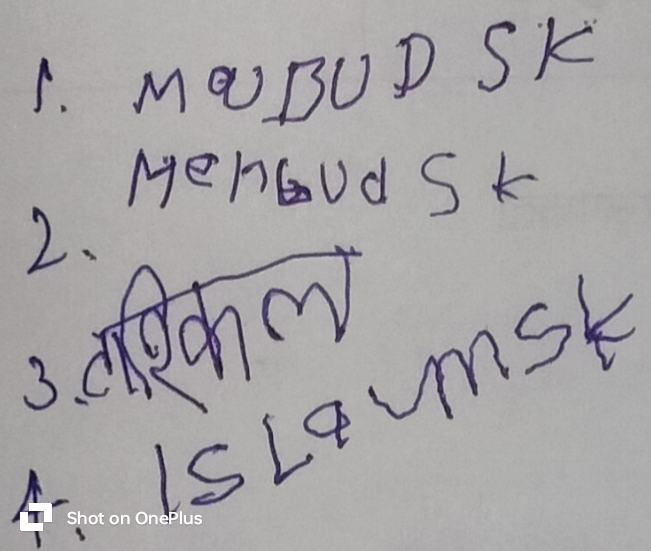 1. MaBUD SK
Mehbud Sk
2.
3. तारिकुल
4. ISLaumSk
Shot on OnePlus